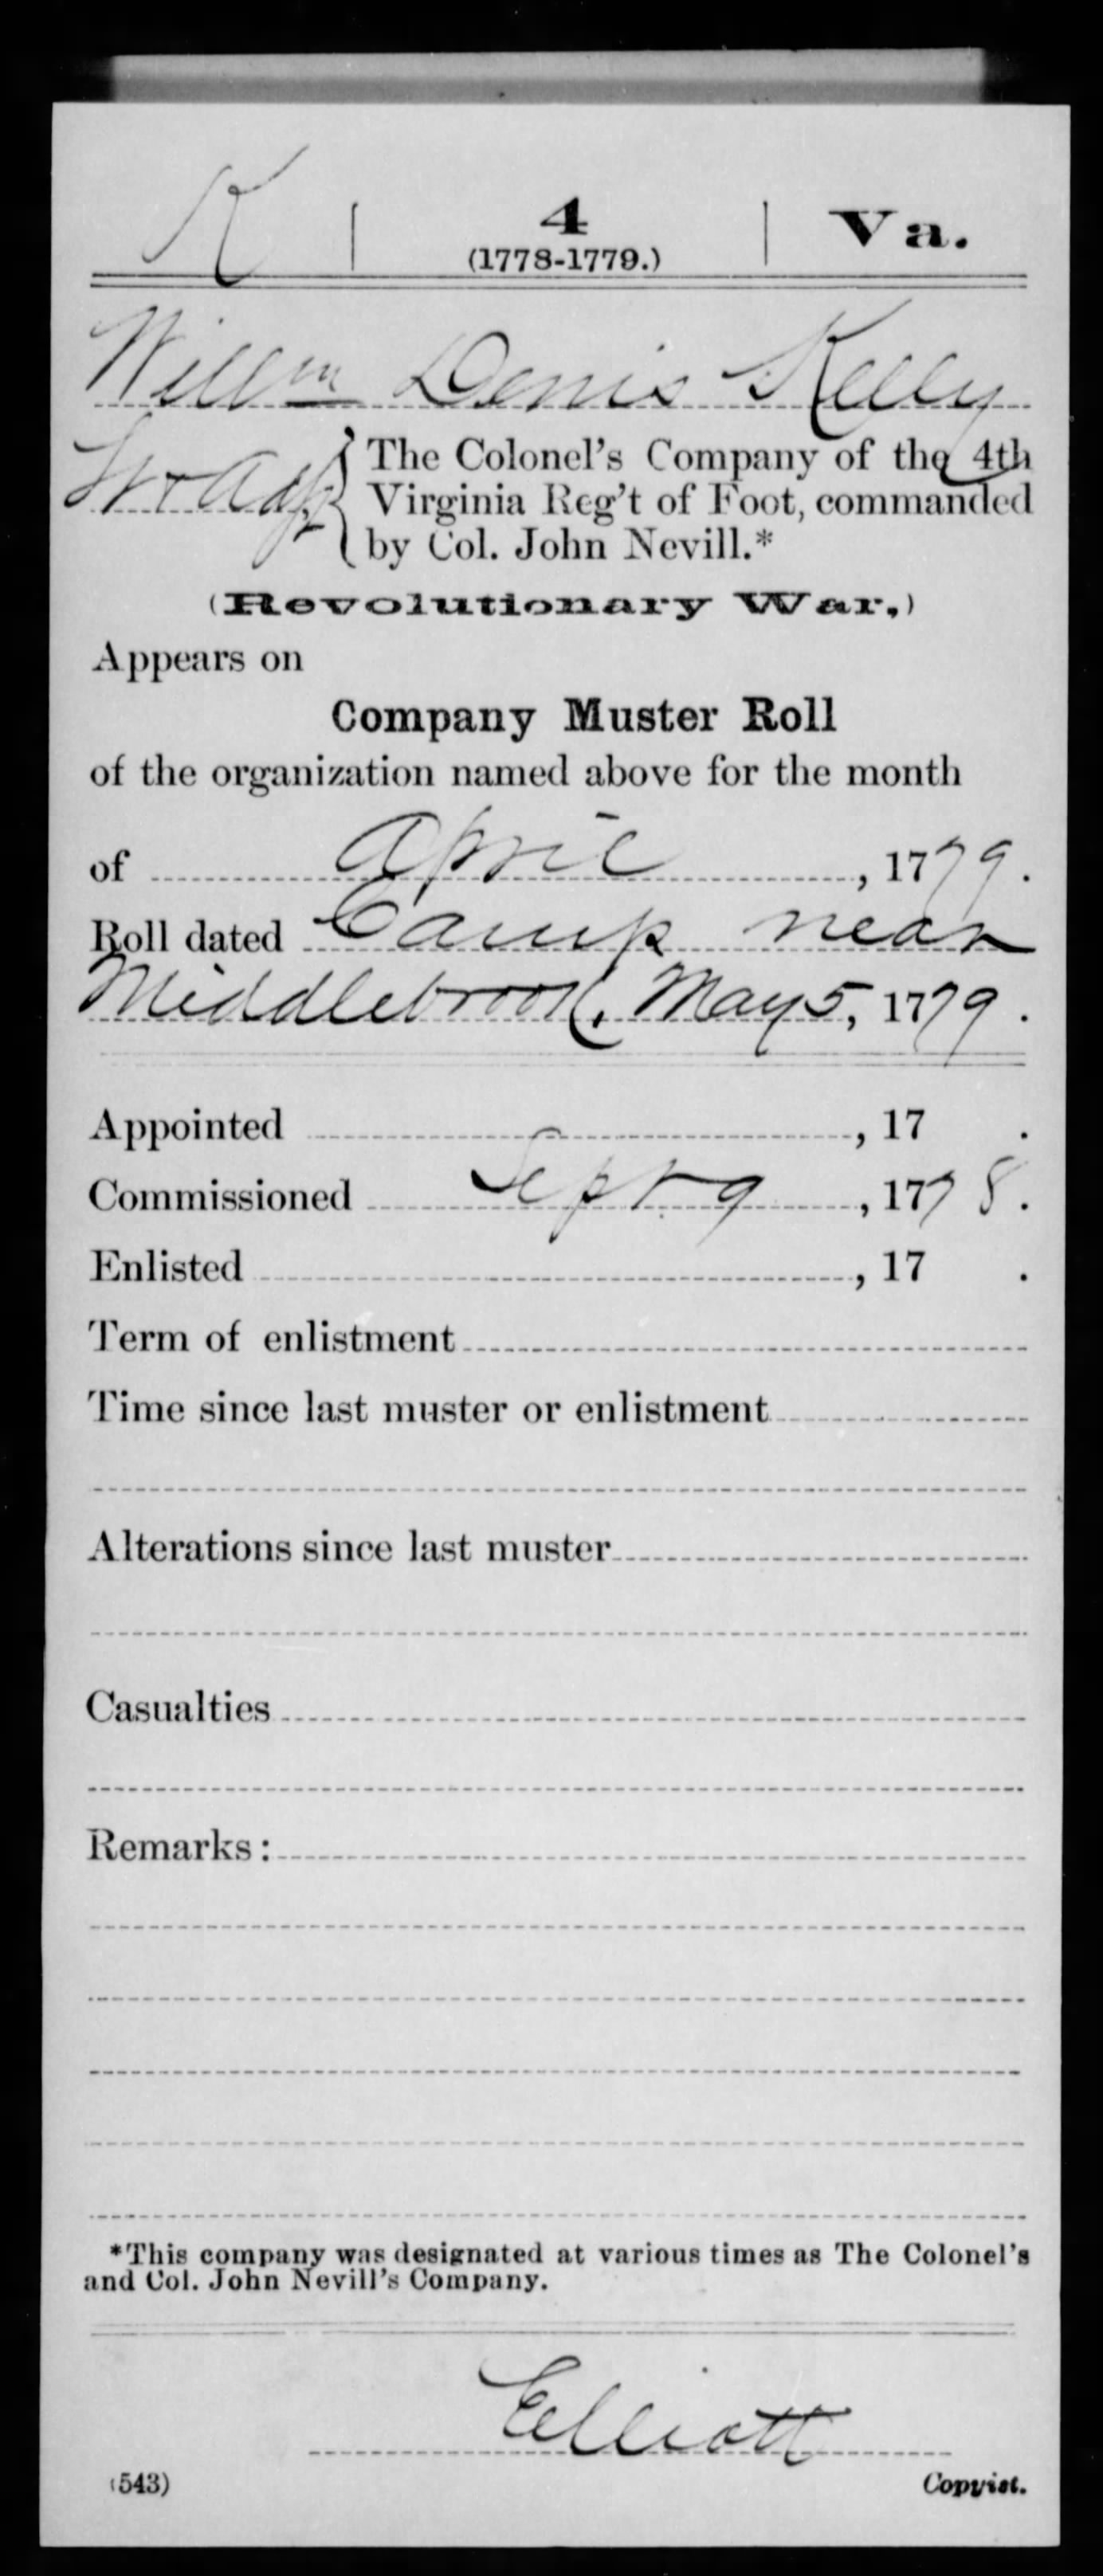 K | 4 | Va.
(1778-1779.)
Willm Denis Kelly
Lt + Adjt } The Colonel's Company of the 4th
Virginia Reg't of Foot, commanded
by Col. John Nevill.*
(Revolutionary War.)
Appears on
Company Muster Roll
of the organization named above for the month
of April, 1779.
Roll dated Camp near
Middlebrook, May 5, 1779.
Appointed , 17 .
Commissioned Sept 9, 1778.
Enlisted , 17 .
Term of enlistment
Time since last muster or enlistment
Alterations since last muster
Casualties
Remarks:
*This company was designated at various times as The Colonel's
and Col. John Nevill's Company.
Elliott
(543) Copyist.